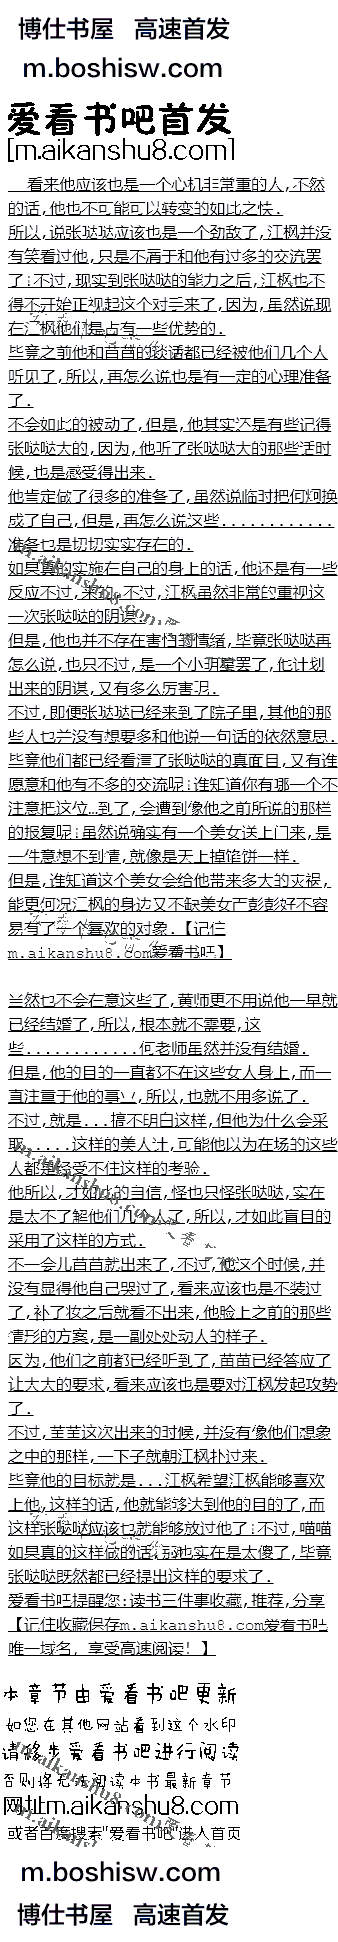 博仕书屋 高速首发
m.boshisw.com
爱看书吧首发
[m.aikanshu8.com]
看来他应该也是一个心机非常重的人,不然
的话,他也不可能可以转变的如此之快.
所以,说张哒哒应该也是一个劲敌了,江枫并没
有笑看过他,只是不屑于和他有过多的交流罢
了:不过,现实到张哒哒的能力之后,江枫也不
得不开始正视起这个对手来了,因为,虽然说现
在江枫他们是占有一些优势的.
毕竟之前他和苗苗的谈话都已经被他们几个人
听见了,所以,再怎么说也是有一定的心理准备
了.
不会如此的被动了,但是,他其实还是有些记得
张哒哒大的,因为,他听了张哒哒大的那些话时
候,也是感受得出来.
他肯定做了很多的准备了,虽然说临时把何炯换
成了自己,但是,再怎么说这些............
准备也是切切实实存在的.
如果真的实施在自己的身上的话,他还是有一些
反应不过,来的:不过,江枫虽然非常的重视这
一次张哒哒的阴谋.
但是,他也并不存在害怕的情绪,毕竟张哒哒再
怎么说,也只不过,是一个小明星罢了,他计划
出来的阴谋,又有多么厉害呢.
不过,即便张哒哒已经来到了院子里,其他的那
些人也并没有想要多和他说一句话的依然意思.
毕竟他们都已经看清了张哒哒的真面目,又有谁
愿意和他有不多的交流呢:谁知道你有哪一个不
注意把这位…到了,会遭到像他之前所说的那样
的报复呢:虽然说确实有一个美女送上门来,是
一件意想不到情,就像是天上掉馅饼一样.
但是,谁知道这个美女会给他带来多大的灾祸,
能更何况江枫的身边又不缺美女而彭彭好不容
易有了一个喜欢的对象.【记住
m.aikanshu8.com爱看书吧】
当然也不会在意这些了,黄师更不用说他一早就
已经结婚了,所以,根本就不需要,这
些............何老师虽然并没有结婚.
但是,他的目的一直都不在这些女人身上,而一
直注重于他的事业,所以,也就不用多说了.
不过,就是...搞不明白这样,但他为什么会采
取......这样的美人计,可能他以为在场的这些
人都是经受不住这样的考验.
他所以,才如此的自信,怪也只怪张哒哒,实在
是太不了解他们几个人了,所以,才如此盲目的
采用了这样的方式.
不一会儿苗苗就出来了,不过,他这个时候,并
没有显得他自己哭过了,看来应该也是不装过
了,补了妆之后就看不出来,他脸上之前的那些
情形的方案,是一副处处动人的样子.
因为,他们之前都已经听到了,苗苗已经答应了
让大大的要求,看来应该也是要对江枫发起攻势
了.
不过,苗苗这次出来的时候,并没有像他们想象
之中的那样,一下子就朝江枫扑过来.
毕竟他的目标就是...江枫希望江枫能够喜欢
上他,这样的话,他就能够达到他的目的了,而
这样张哒哒应该也就能够放过他了:不过,喵喵
如果真的这样做的话,那也实在是太傻了,毕竟
张哒哒既然都已经提出这样的要求了.
爱看书吧提醒您:读书三件事收藏,推荐,分享
【记住收藏保存m.aikanshu8.com爱看书吧
唯一域名, 享受高速阅读! 】
本章节由爱看书吧更新
如您在其他网站看到这个水印
请移步爱看书吧进行阅读
否则将无法阅读本书最新章节
网址m.aikanshu8.com
或者百度搜索"爱看书吧"进入首页
m.boshisw.com
博仕书屋 高速首发